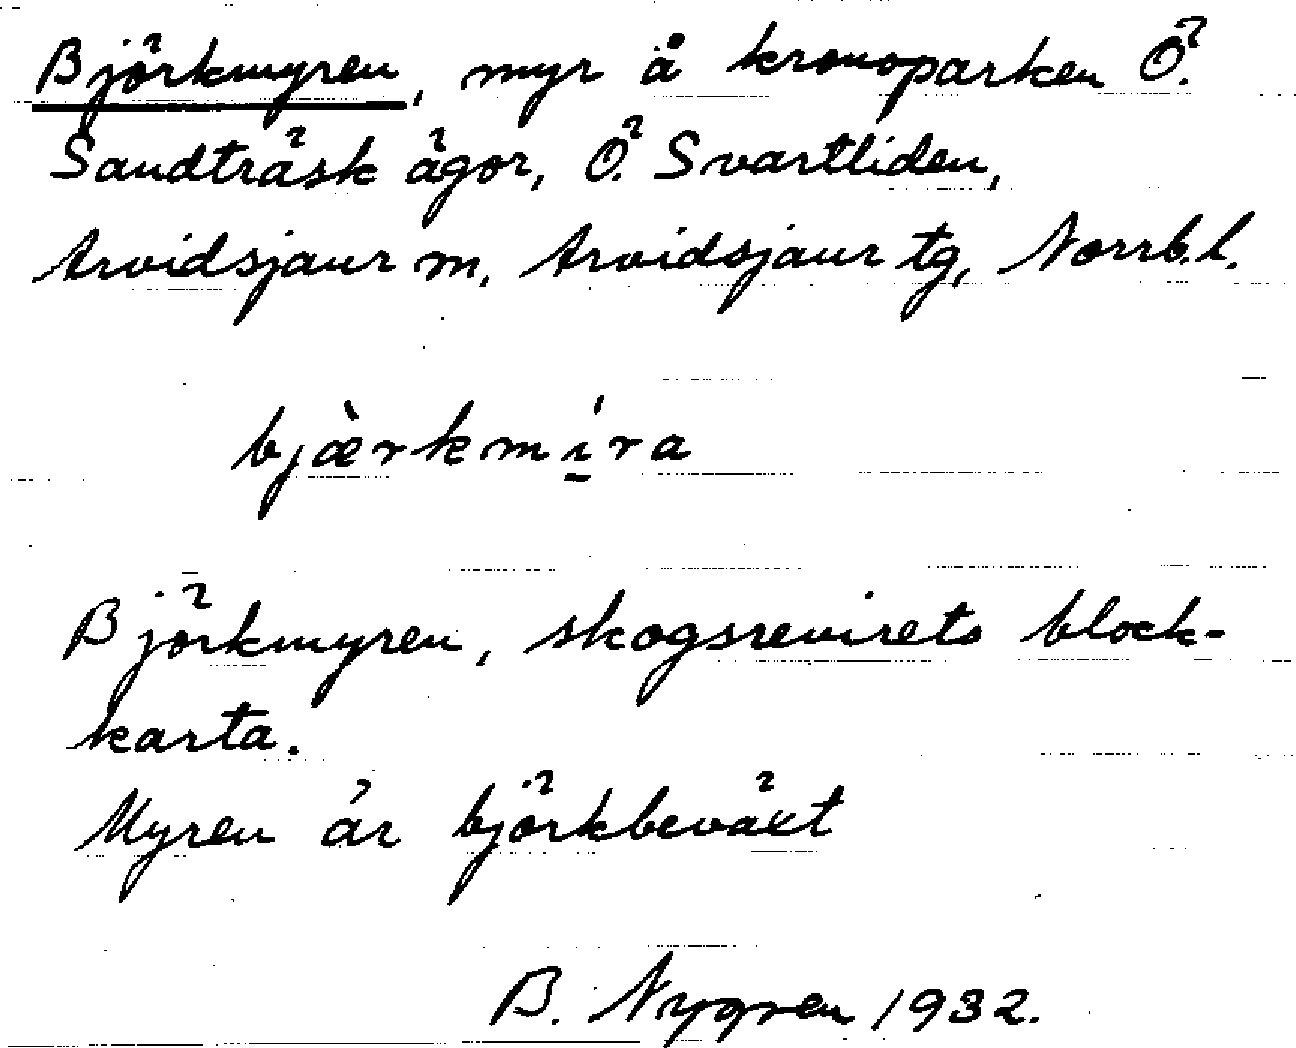 Björkmyren, myr å kronoparken Ö.
Sandträsk ägor, Ö. Svartliden,
Arvidsjaur m, Arvidsjaur tg, Norrb.l.
bjæ̀rkmí̱ra
Björkmyren, skogsrevirets block-
karta.
Myren är björkbeväxt
B. Nygren 1932.